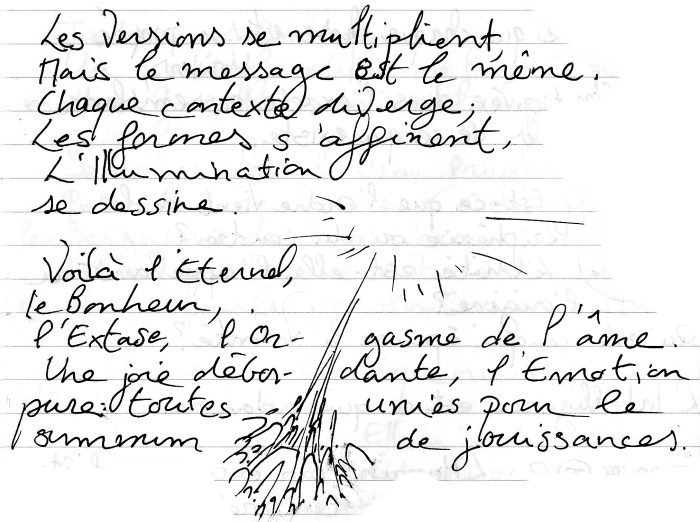 Les Versions se multiplient,
Mais le message est le même.
Chaque contexte diverge;
Les formes s'affinent,
L'Illumination
se dessine.
Voilà l'Eternel,
le Bonheur,
l'Extase, l'Or- gasme de l'âme.
Une joie débor- dante, l'Emotion
pure: toutes unies pour le
summum de jouissances.